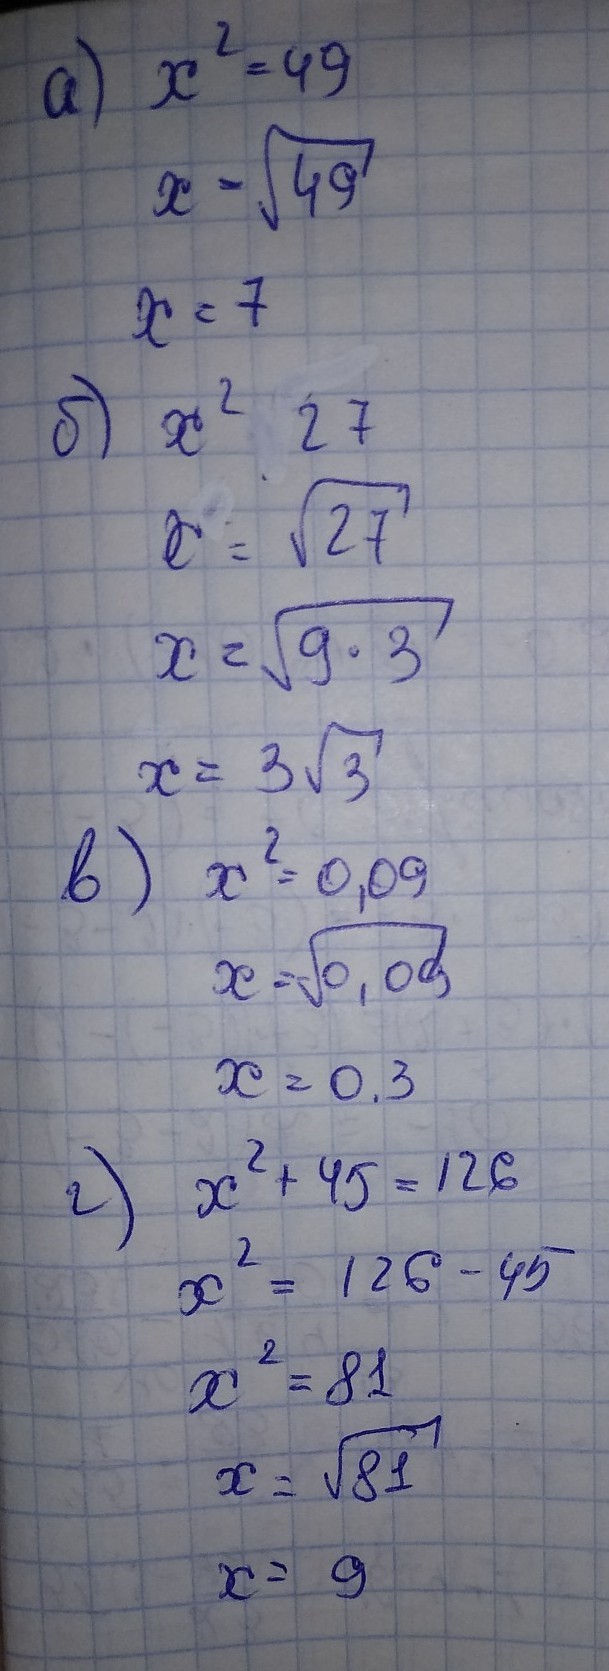 а) x² = 49
x = √49
x = 7
б) x² 27
x = √27
x = √9·3
x = 3√3
в) x² = 0,09
x = √0,09
x = 0.3
г) x² + 45 = 126
x² = 126 - 45
x² = 81
x = √81
x = 9